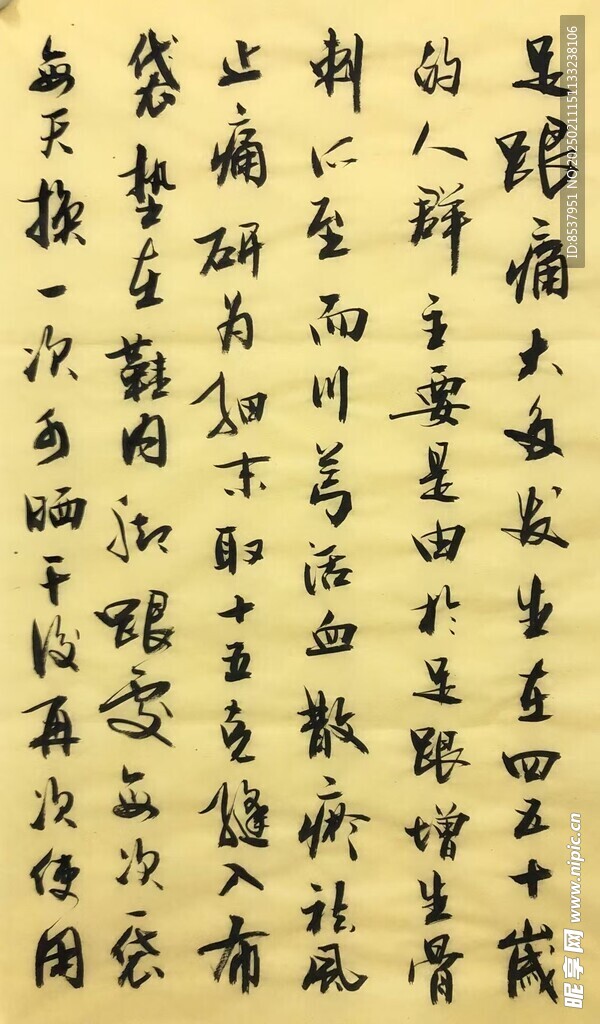 足跟痛大多发生在四五十歲
的人群主要是由於足跟增生骨
刺所至而川芎活血散瘀祛风
止痛研为细末取十五克缝入布
袋垫在鞋内脚跟處每次一袋
每天换一次可晒干後再次使用
ID:8537951 NO:20250211151133238106
昵享网 www.nipic.cn